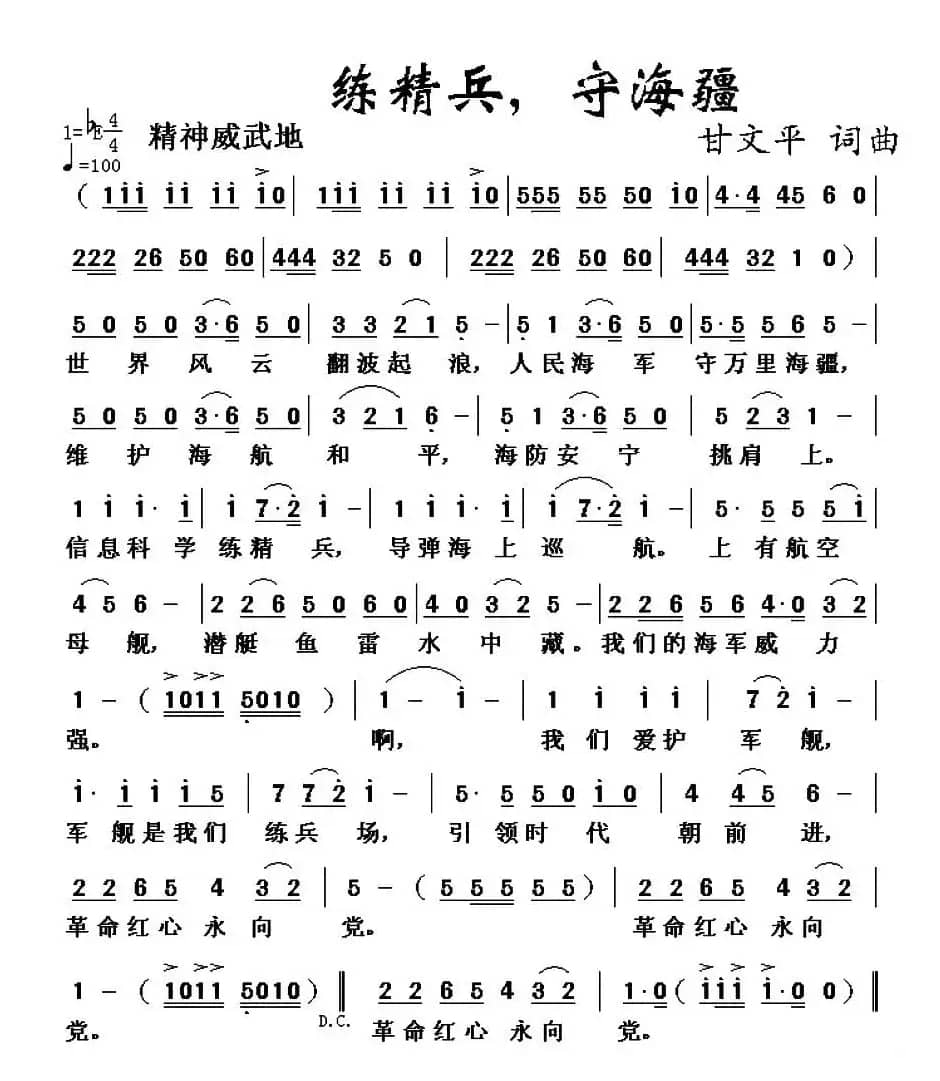 练精兵，守海疆
1=♭E 4/4 精神威武地 甘文平 词曲
♩=100
( 1i̇i̇ i̇i̇ i̇i̇ i̇0 | 1i̇i̇ i̇i̇ i̇i̇ i̇0 | 555 55 50 i̇0 | 4·4 45 6 0 |
222 26 50 60 | 444 32 5 0 | 222 26 50 60 | 444 32 1 0 ) |
5 0 5 0 3·6 5 0 | 3 3 2 1 5̣ – | 5̣ 1 3·6 5 0 | 5·5 5 6 5 – |
世 界 风 云 翻波起 浪，人民海 军 守万里海疆，
5 0 5 0 3·6 5 0 | 3 2 1 6̣ – | 5̣ 1 3·6 5 0 | 5 2 3 1 – |
维 护 海 航 和 平， 海防安 宁 挑肩 上。
1 i̇ i̇· i̇ | i̇ 7·2̇ i̇ – | 1 i̇ i̇· i̇ | i̇ 7·2̇ i̇ – | 5· 5 5 5 i̇ |
信息科 学 练精 兵， 导弹海 上 巡 航。 上 有航空
4 5 6 – | 2 2 6 5 0 6 0 | 4 0 3 2 5 – | 2 2 6 5 6 4·0 3 2 |
母 舰， 潜艇 鱼 雷 水 中 藏。我们的海军威 力
1 – ( 1011 5̣010 ) | 1 – i̇ – | 1 i̇ i̇ i̇ | 7 2̇ i̇ – |
强。 啊， 我 们 爱护 军 舰，
i̇· i̇ i̇ i̇ 5 | 7 7 2̇ i̇ – | 5· 5 5 0 i̇ 0 | 4 4 5 6 – |
军 舰是我们 练兵 场， 引 领时 代 朝 前 进，
2 2 6 5 4 3 2 | 5 – ( 5 5 5 5 5 ) | 2 2 6 5 4 3 2 |
革命红心 永 向 党。 革命红心 永 向
1 – ( 1011 5̣010 ) ‖ 2 2 6 5 4 3 2 | 1·0 ( i̇i̇i̇ i̇·0 0 ) ‖
D.C.
党。 革命红心 永向 党。